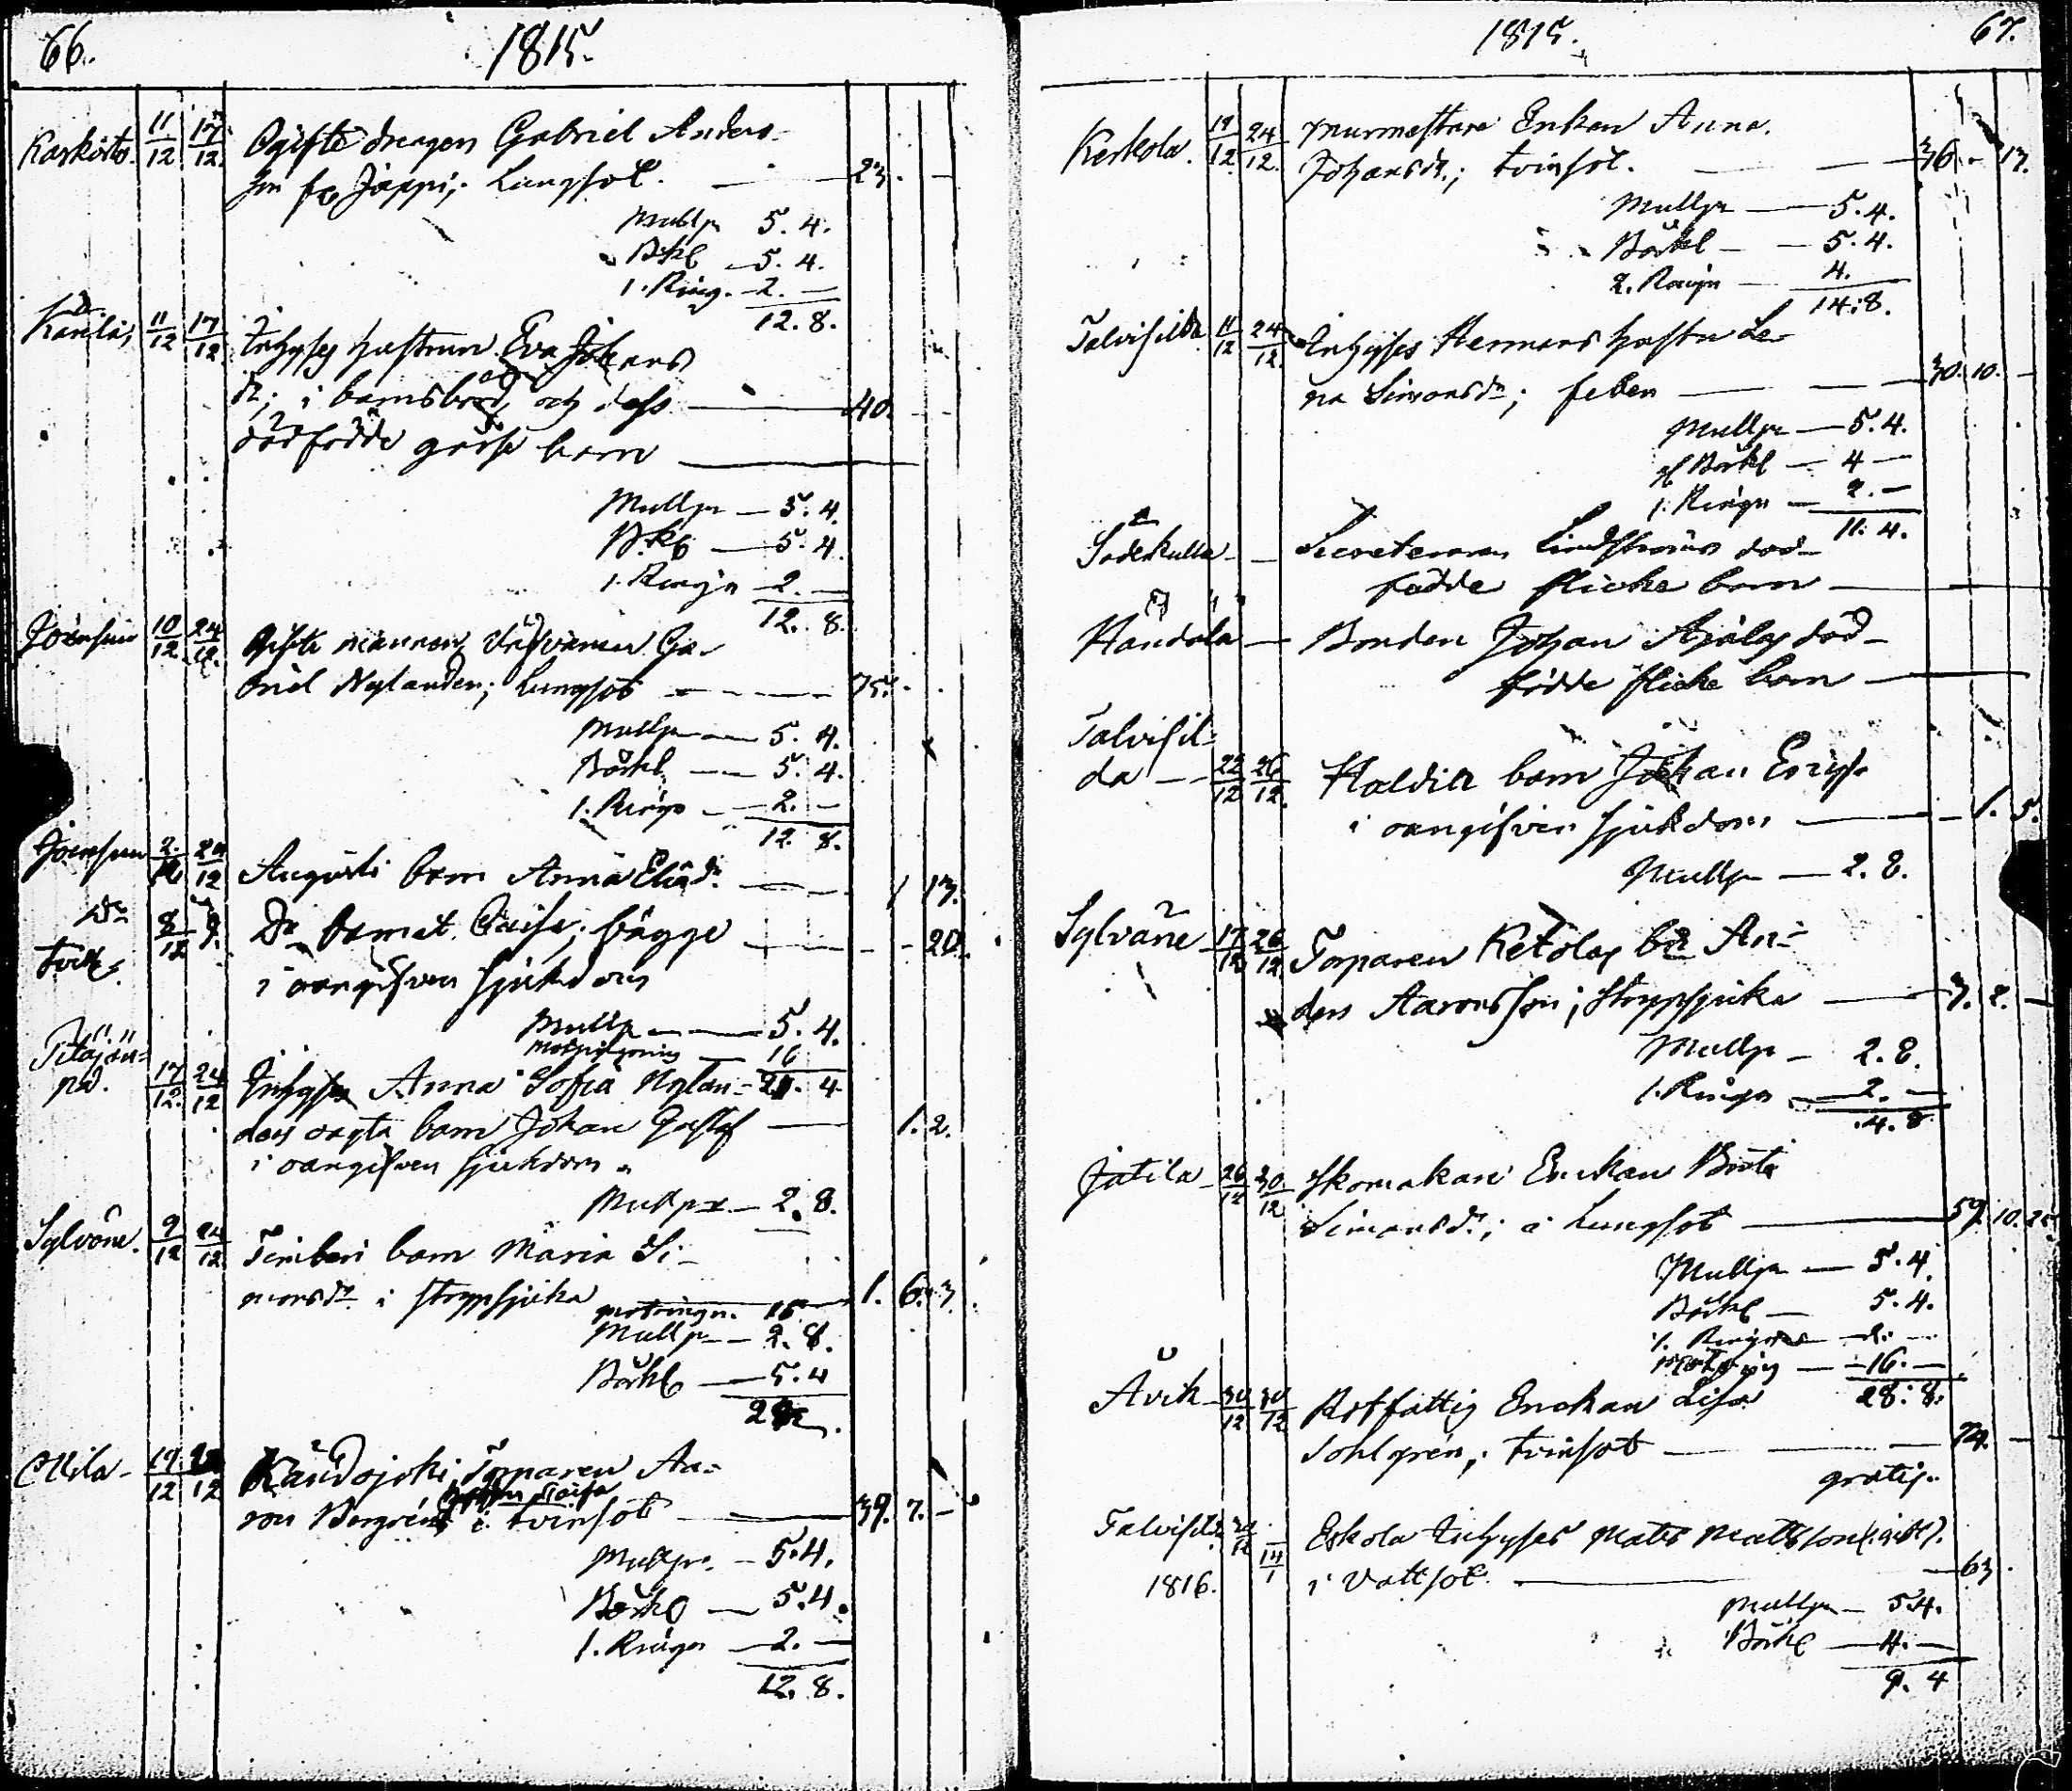 66.
1815.
Karkisto. 11/12 17/12 Ogifte dragon Gabriel Anders-
son fr. Jäppi; Lungsot. — 23. —
Mullp 5. 4.
Bkl 5. 4.
1. Ring. 2. —
12. 8.
11/12 17/12 Inhyses hustrun Eva Johans
dr; i barnsbörd och dess — 40. —
dödfödde gosse barn —
Mullpr — 5. 4.
Bkl — 5. 4.
1. Ringn 2. —
12. 8.
Joensuu 10/12 24/12 Gifte mannen Ga-
briel Nylander; Lungsot — 75. .
Mullpr — 5. 4.
Bårkl. — 5. 4.
1. Ringn — 2. —
12. 8.
Joensuu 2/12 24/12 Augusti barn Anna Eliæ dr. — 1 13.
Do 8/12 Do barnet Caisa; bägge — 20.
i oangifven sjukdom
Mullp — 5. 4.
16
21. 4.
17/12 24/12 Inhyses Anna Sofia Nylan-
ders oägta barn Johan Gustaf — 1. 2.
i oangifven sjukdom.
Mullpr — 2. 8.
Sylväne. 9/12 24/12 Timberi barn Maria Si-
monsdr. i stryppsjuka 1. 6. 3.
motringn. 16.
Mullp — 2. 8.
Bårkl — 5. 4
Ollila 19/12 Torparen Aa-
ron Bergréns i tvinsot — 39. 7. —
Mullpr. — 5. 4.
Bårkl — 5. 4.
1. Ringn — 2. —
12. 8.
1815.
67.
Keskola. 19/12 24/12 Murmästare Enkan Anna
Johansdr.; tvinsot. — 36. - 13.
Mullpr — 5. 4.
Bårkl — 5. 4.
2. Ringn — 4.
14. 8.
Talvisilda 11/12 24/12 Inhyses Hermans hustru Le-
na Simonsdr; feber — 30. 10. —
Mullpr — 5. 4.
Bårkl — 4 —
1. Ringn — 2. —
11. 4.
Söderkulla — Secreteraren Lindströms död-
födde flicke barn —
Händälä — Bonden Johan Äjäläs död-
födde flicke barn —
Talvisil-
da — 22/12 26/12 Haldin barn Johan Ericss.
i oangifven sjukdom — 1. 5.
Mullpr — 2. 8.
Sylväne 17/12 26/12 Torparen Ketolas bn An-
ders Aaronsson; stryppsjuka — 3. 2. —
Mullp — 2. 8.
1. Ringn — 2. —
4. 8.
Jatila 26/12 30/12 Skomakare Enckan Brita
Simonsdr.; i Lungsot — 59. 10. 25
Mullpr — 5. 4.
Bårkl — 5. 4.
1. Ringn — 2. —
motring — 16. —
28. 8.
Åvik 30/12 30/12 Rotfattig Enckan Lisa
Sohlgrén; tvinsot — 74. —
gratis.
Talvisilda 14/1 Eskola Inhyses Mats Mattsson
1816. i Vattsot. — 63.
Mullpr — 5. 4.
Bårkl — 4. —
9. 4